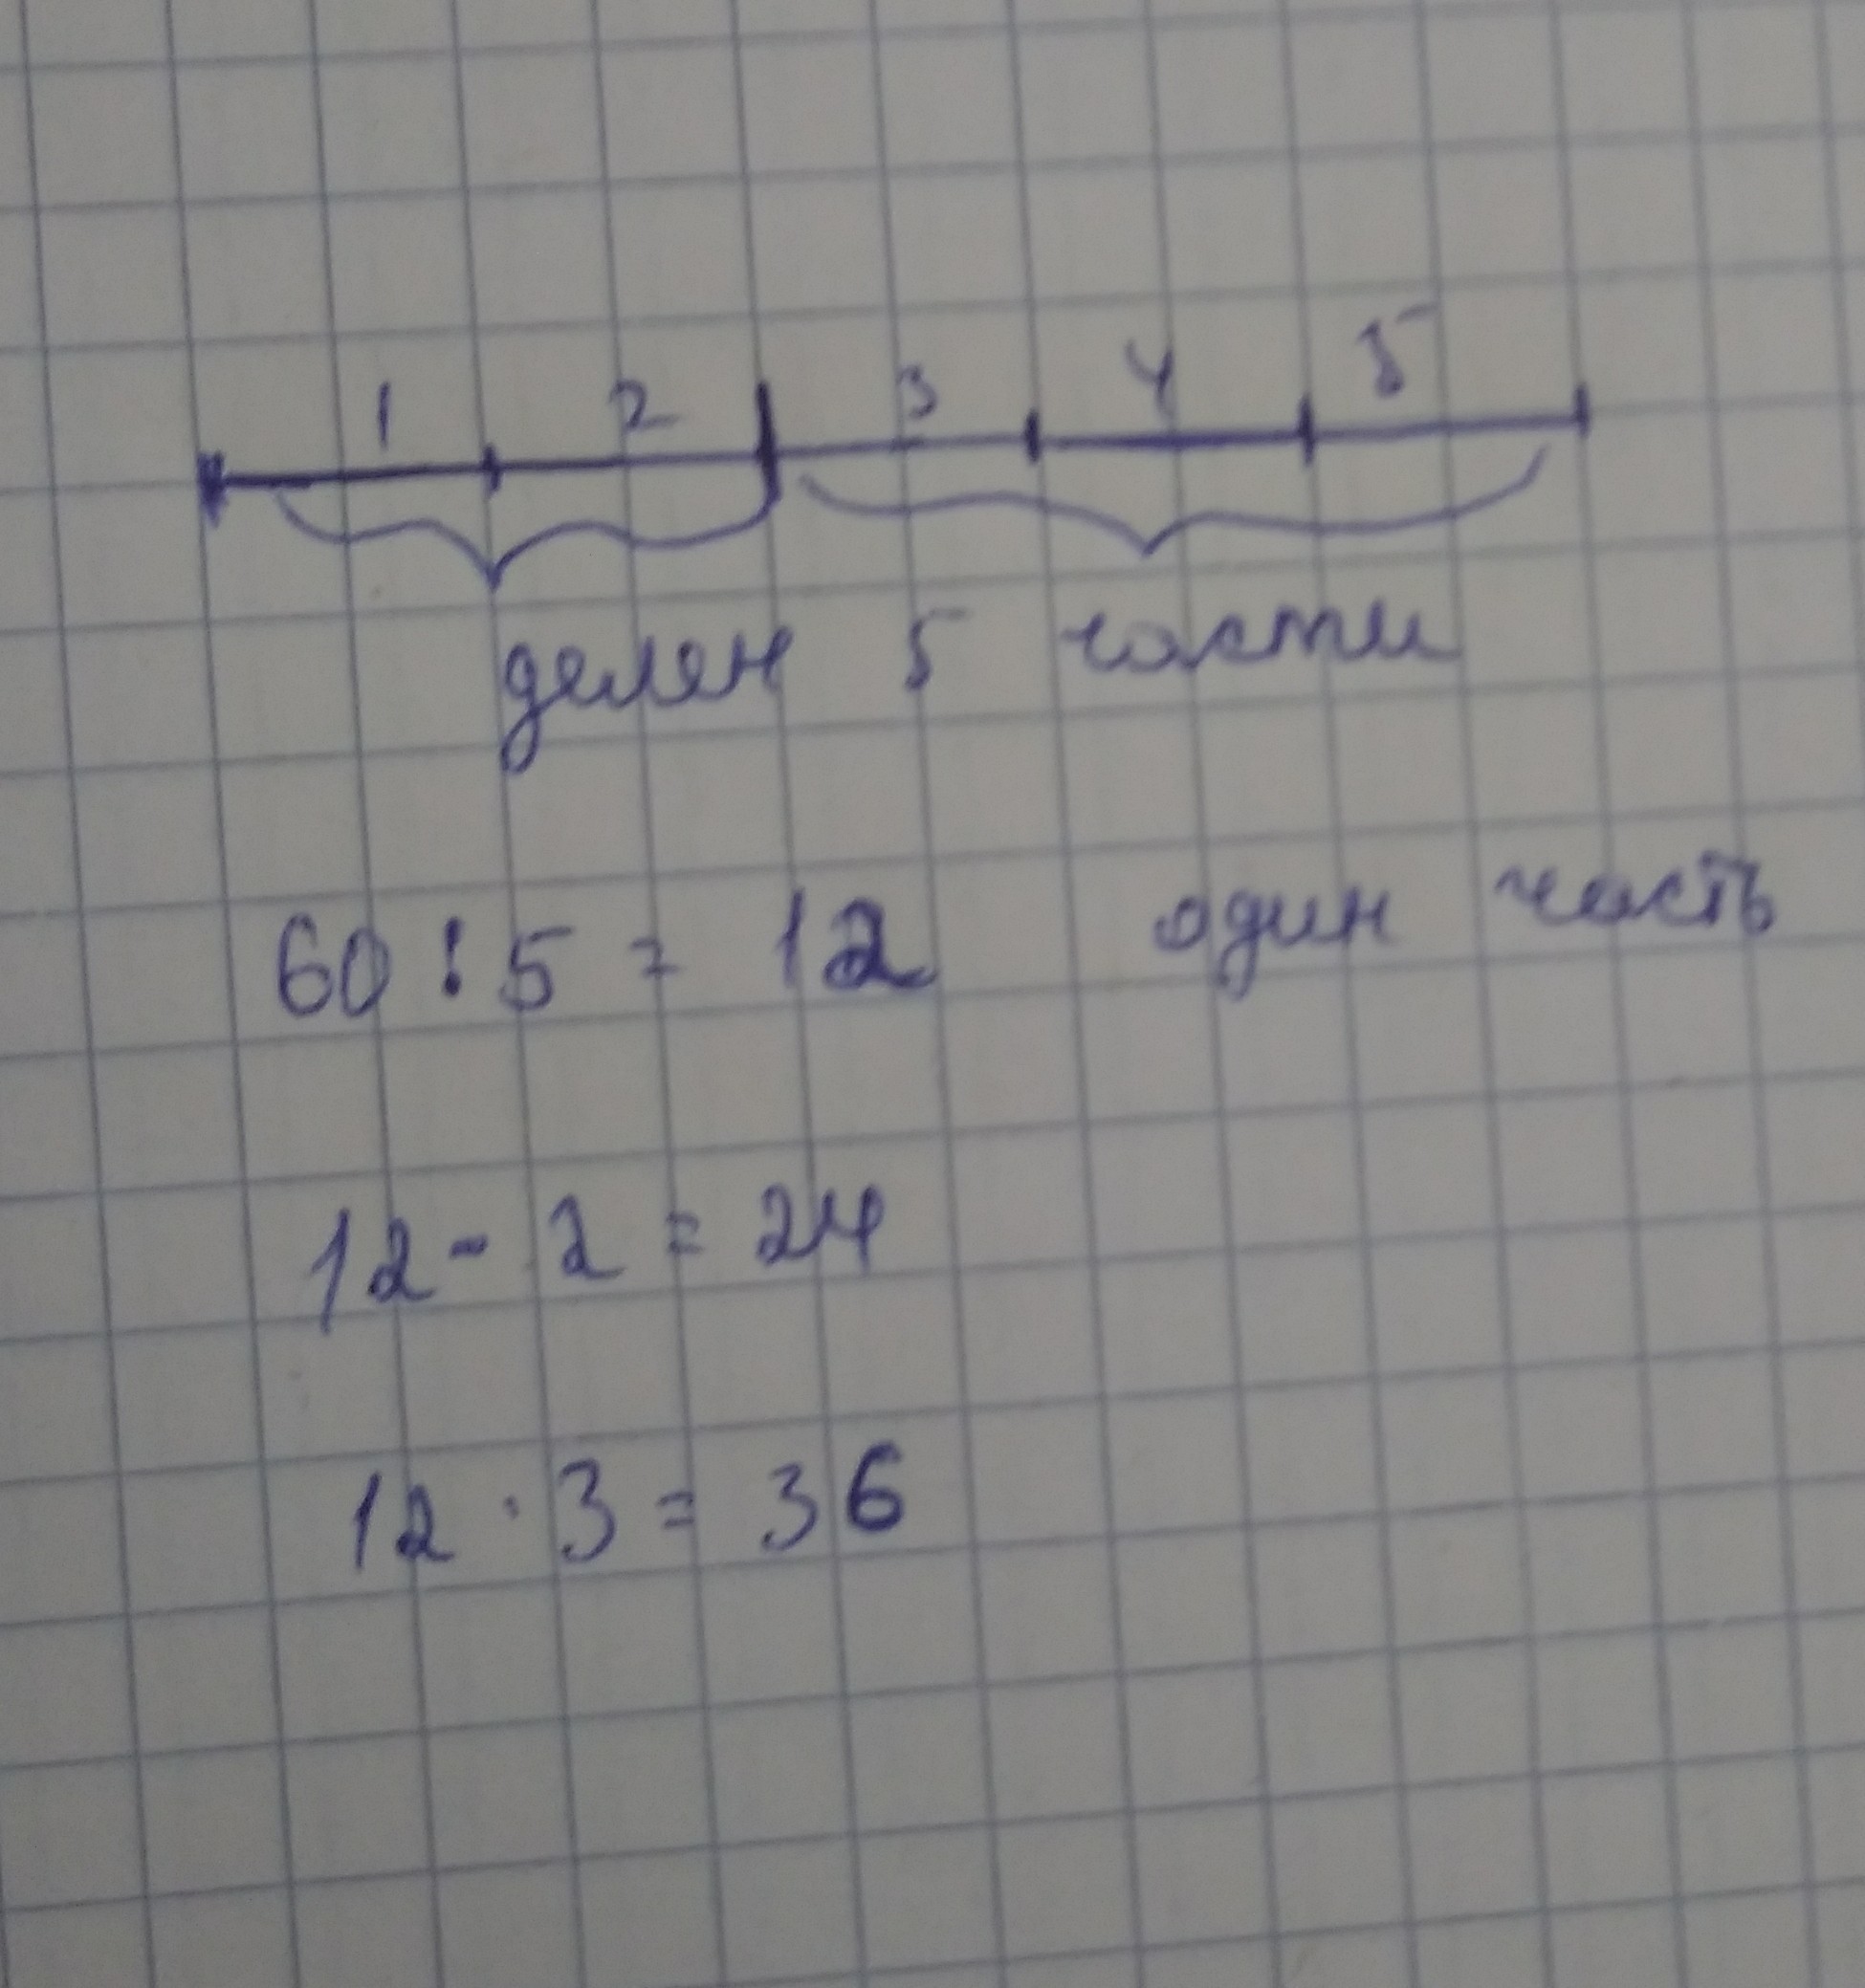 1 2 3 4 5
делен 5 части
60 : 5 = 12 один часть
12 - 2 = 24
12 · 3 = 36